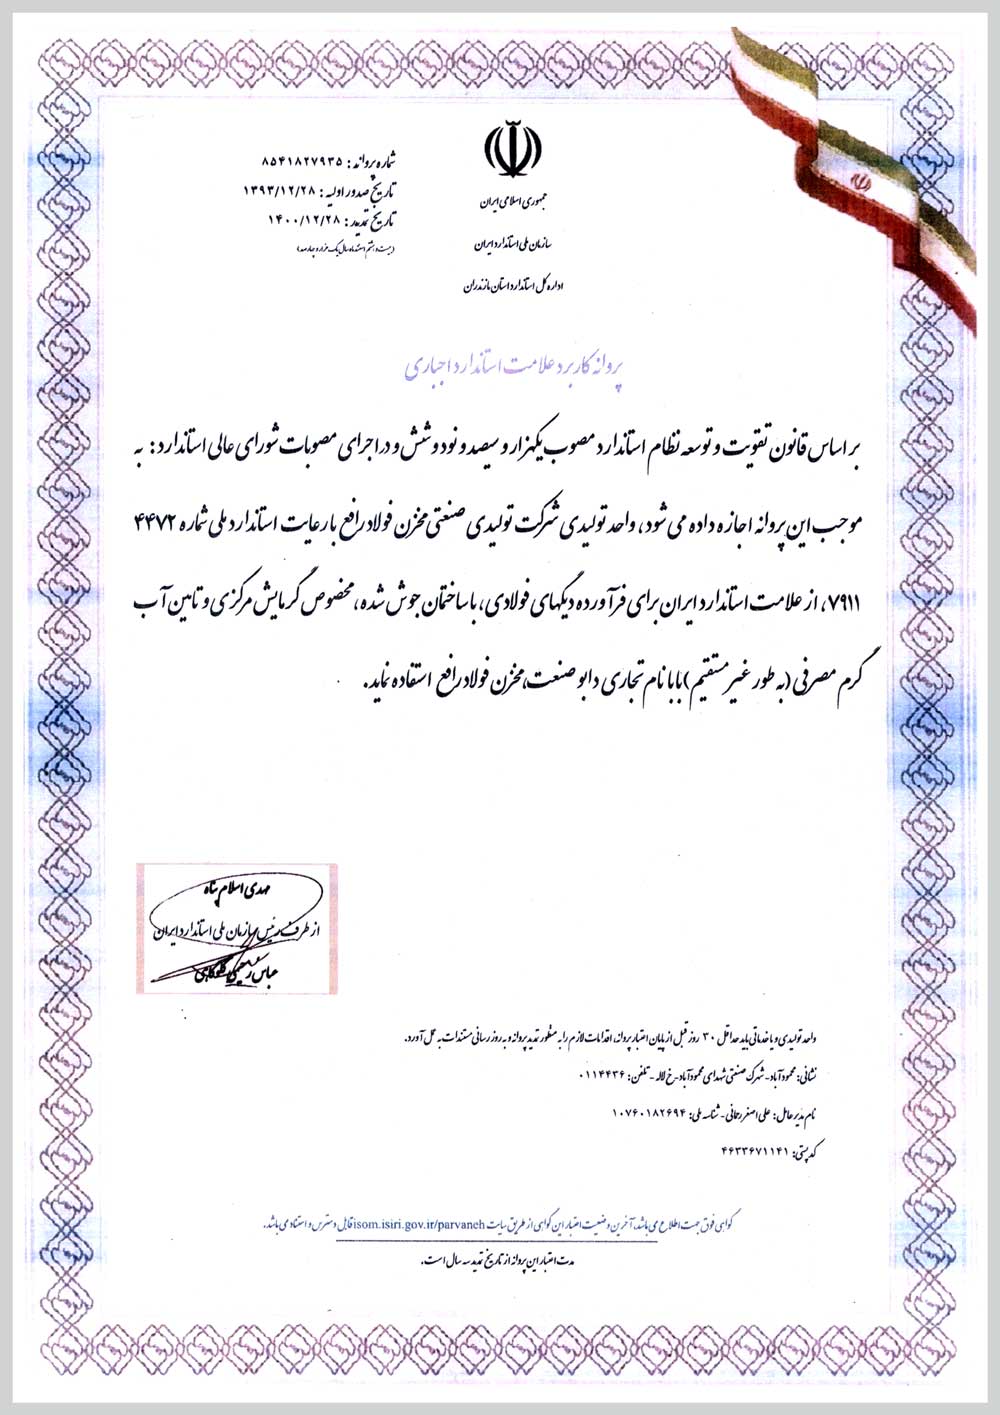 جمهوری اسلامی ایران
سازمان ملی استاندارد ایران
اداره کل استاندارد استان مازندران
شماره پروانه : ۸۵۴۱۸۲۷۹۳۵
تاریخ صدور اولیه : ۱۳۹۳/۱۲/۲۸
تاریخ تمدید : ۱۴۰۰/۱۲/۲۸
(بیست و هشتم اسفند ماه سال یک هزار و چهارصد)
پروانه کاربرد علامت استاندارد اجباری
بر اساس قانون تقویت و توسعه نظام استاندارد مصوب یکهزار و سیصد و نود و شش و در اجرای مصوبات شورای عالی استاندارد : به
موجب این پروانه اجازه داده می شود، واحد تولیدی شرکت تولیدی صنعتی مخزن فولاد رافع با رعایت استاندارد ملی شماره ۴۴۷۲
۷۹۱۱، از علامت استاندارد ایران برای فرآورده دیگهای فولادی، با ساختمان جوش شده، مخصوص گرمایش مرکزی و تامین آب
گرم مصرفی (به طور غیر مستقیم) با با نام تجاری دابو صنعت، مخزن فولاد رافع استفاده نماید.
مهدی اسلام پناه
از طرف رئیس سازمان ملی استاندارد ایران
عباس
واحد تولیدی و یا خدماتی باید حداقل ۳۰ روز قبل از پایان اعتبار پروانه، اقدامات لازم را به منظور تمدید پروانه و به روز رسانی مستندات به عمل آورد.
نشانی: محمودآباد- شهرک صنعتی شهدای محمودآباد- خ لاله - تلفن: ۰۱۱۴۴۳۶
نام مدیر عامل: علی اصغر رحمانی - شناسه ملی: ۱۰۷۶۰۱۸۲۶۹۴
کد پستی: ۴۶۳۳۶۷۱۱۴۱
گواهی فوق جهت اطلاع می باشد، آخرین وضعیت اعتبار این گواهی از طریق سایت isom.isiri.gov.ir/parvaneh قابل دسترس و استناد می باشد.
مدت اعتبار این پروانه از تاریخ تمدید سه سال است.